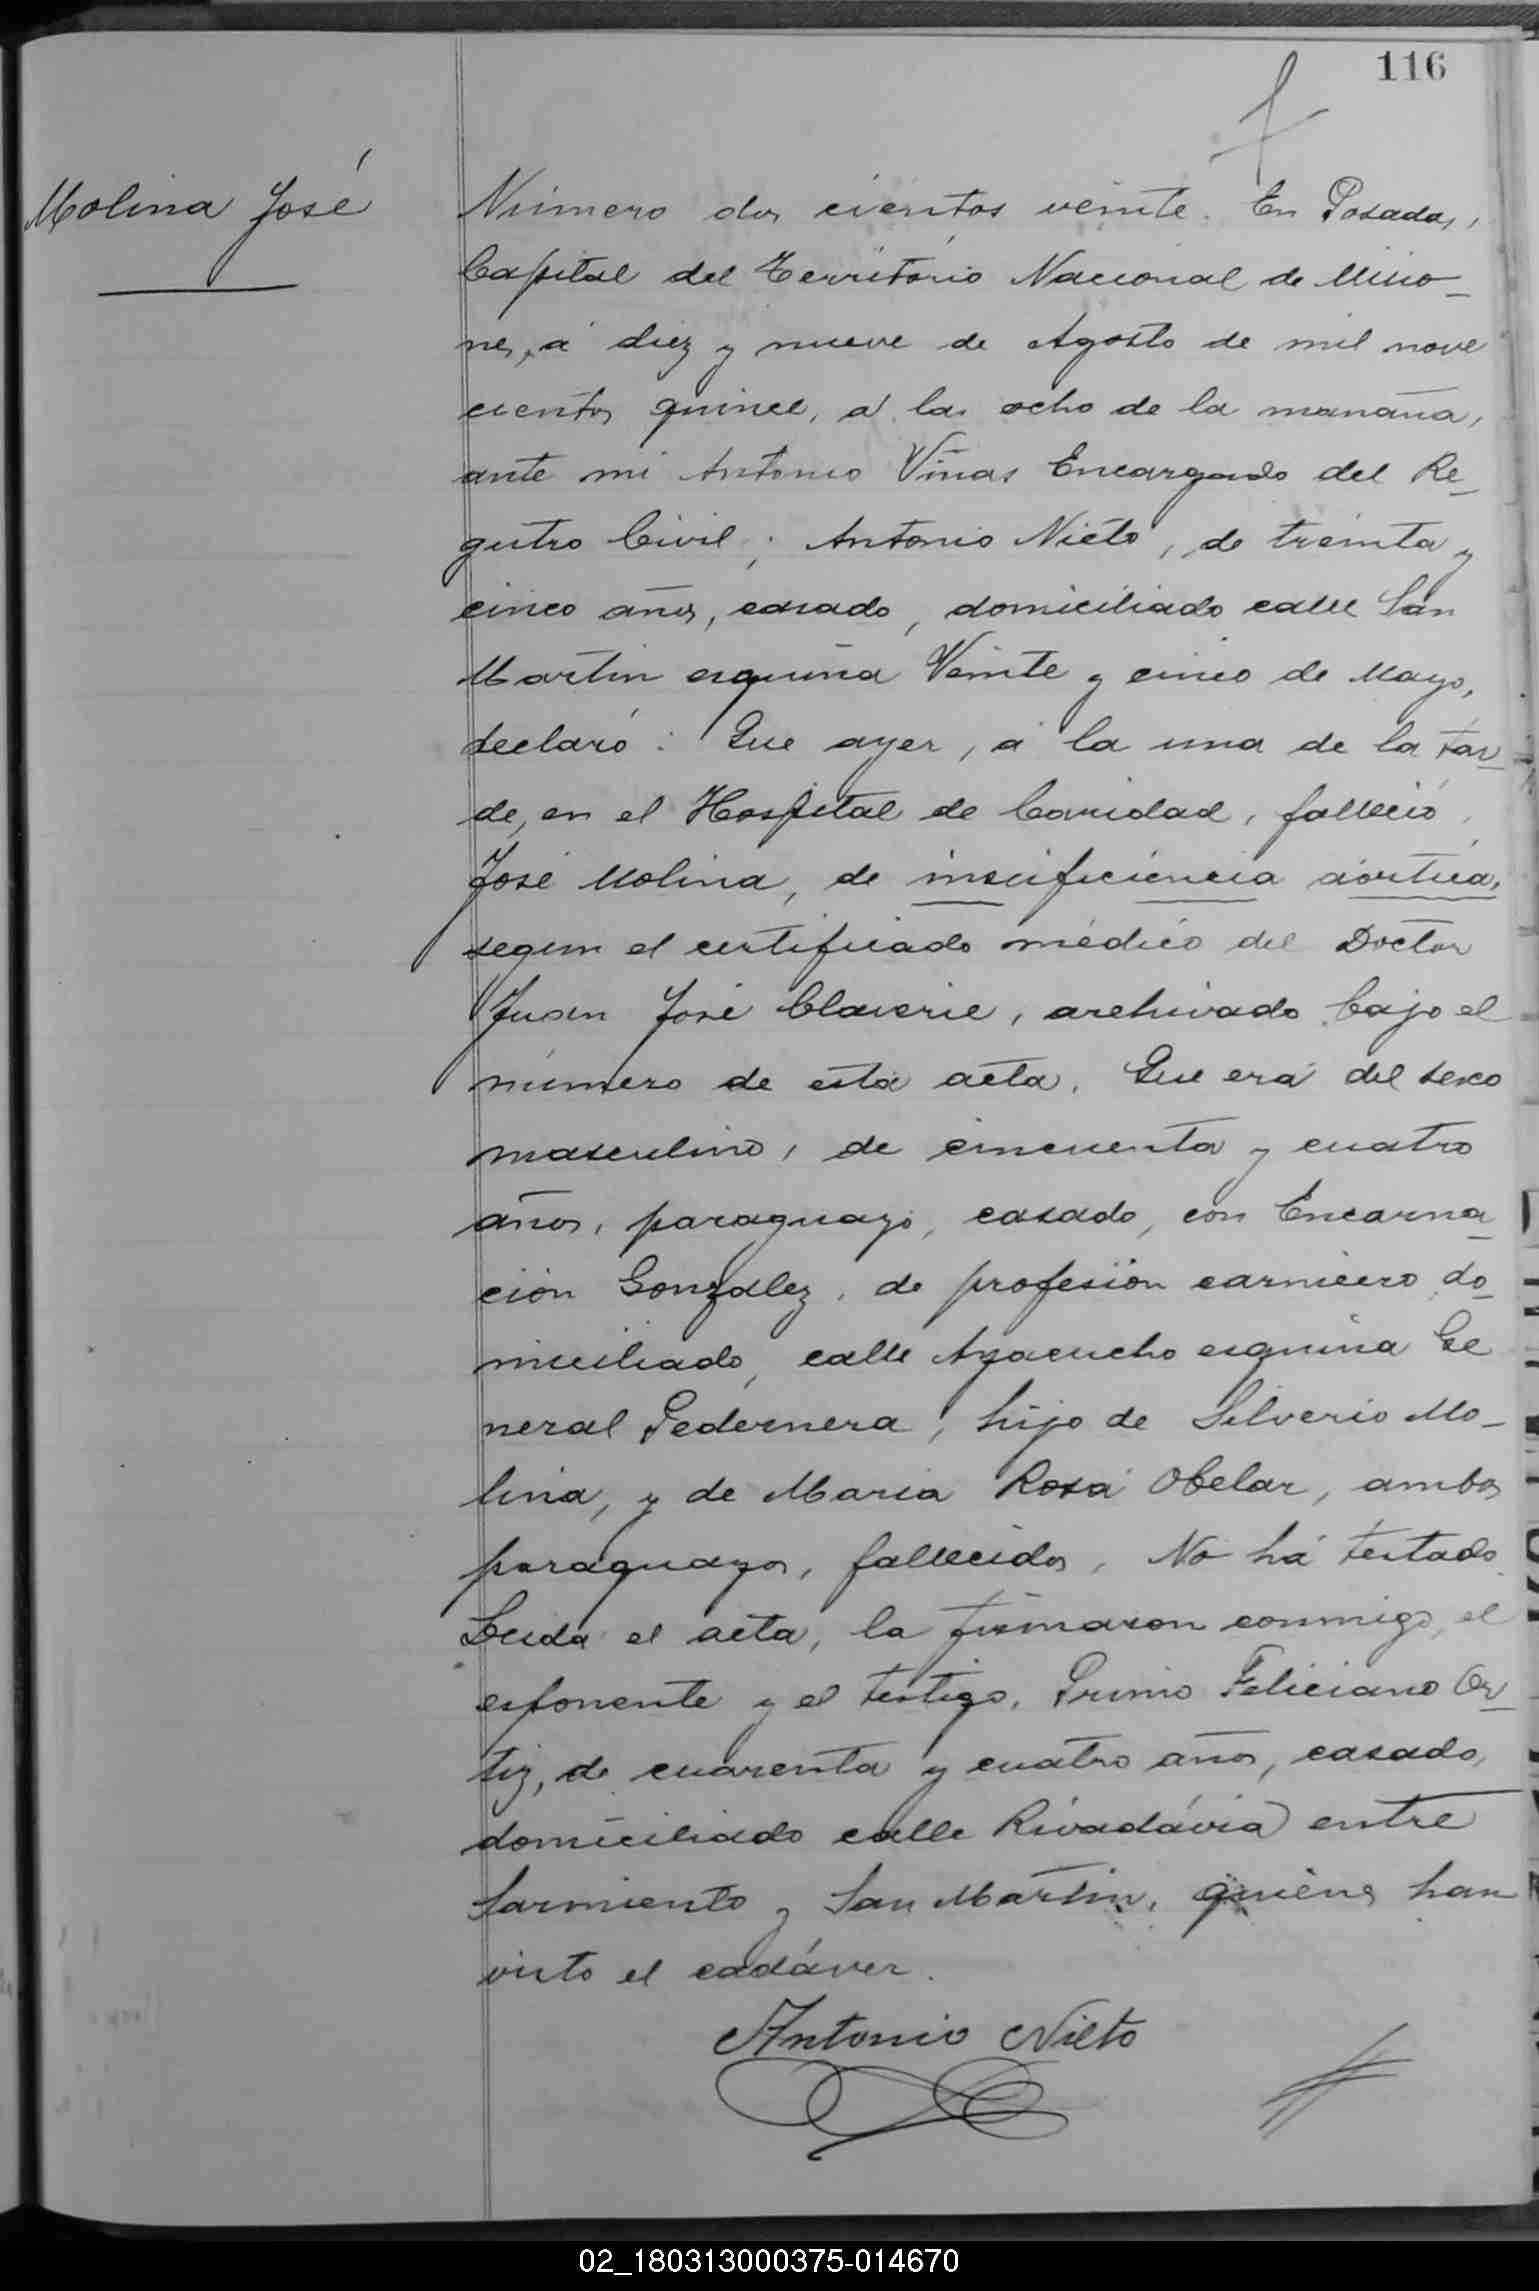 116
Molina José
Número dos cientos veinte. En Posadas,
Capital del Territorio Nacional de Misio-
nes, a diez y nueve de Agosto de mil nove
cientos quince, a las ocho de la mañana,
ante mi Antonio Viñas Encargado del Re-
gistro Civil; Antonio Nieto, de treinta y
cinco años, casado, domiciliado calle San
Martin esquina Veinte y cinco de Mayo,
declaró: Que ayer, a la una de la tar-
de, en el Hospital de Caridad, falleció,
José Molina, de insuficiencia aórtica,
segun el certificado médico del Doctor
Juan José Claverie, archivado bajo el
número de esta acta. Que era del sexo
masculino, de cincuenta y cuatro
años, paraguayo, casado, con Encarna-
ción González, de profesión carnicero, do-
miciliado, calle Ayacucho esquina Ge
neral Pedernera, hijo de Silverio Mo-
lina, y de Maria Rosa Obelar, ambos
paraguayos, fallecidos. No há testado.
Leida el acta, la firmaron conmigo, el
esponente y el testigo, Primo Feliciano Or-
tiz, de cuarenta y cuatro años, casado,
domiciliado calle Rivadavia entre
Sarmiento y San Martin, quienes han
visto el cadáver.
Antonio Nieto
02_180313000375-014670